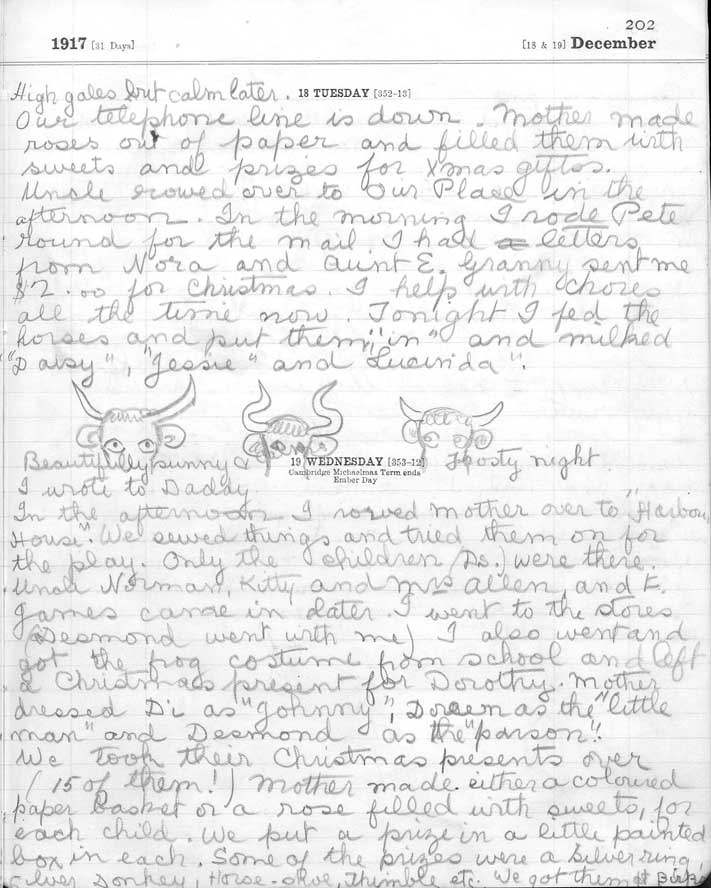 202
1917 [31 Days] [18 & 19] December
High gales but calm later. 18 TUESDAY [352-13]
Our telephone line is down. Mother made
roses out of paper and filled them with
sweets and prizes for Xmas gifts.
Uncle rowed over to Our Place in the
afternoon. In the morning I rode Pete
round for the mail. I had a letters
from Nora and Aunt E. Granny sent me
$2.00 for Christmas. I help with chores
all the time now. Tonight I fed the
horses and put them "in" and milked
"Daisy", "Jessie" and "Lucinda".
Beautifully sunny & 19 WEDNESDAY [353-12] Frosty night
Cambridge Michaelmas Term ends
Ember Day
I wrote to Daddy.
In the afternoon I rowed mother over to "Harbour
House". We sewed things and tried them on for
the play. Only the children (Ds.) were there.
Uncle Norman, Kitty and Mrs Allen, and F.
James came in later. I went to the stores
(Desmond went with me) I also went and
got the frog costume from school and left
a Christmas present for Dorothy. Mother
dressed Di as "Johnny", Doreen as the "little
man" and Desmond as the "parson".
We took their Christmas presents over
(15 of them!) Mother made either a coloured
paper basket or a rose filled with sweets, for
each child. We put a prize in a little painted
box in each. Some of the prizes were a silver ring,
silver Donkey, Horse-shoe, Thimble etc. We got them at